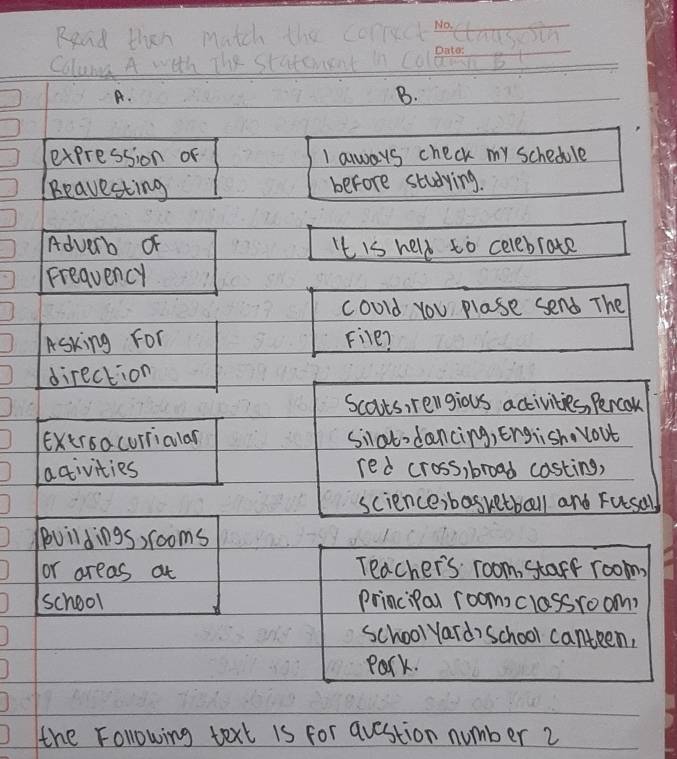 No.
Read then match the correct Clauses in
Date:
Column A with The Statement in Column B!
A.
B.
expression of
Reavesting
Adverb of
Freavency
Asking For
direction
Extroacurricular
activities
Buildings, rooms
or areas at
school
I aways check my schedule
before studying.
It is held to celebrate
Could you plase send The
File?
Scouts, religious activities, Pencak
silat, dancing, English, Yout
red cross, broad casting,
science, basketball and Futsal
Teacher's room, staff room,
Principal room, classroom,
school Yard, school canteen,
Park.
the Following text is for avestion number 2